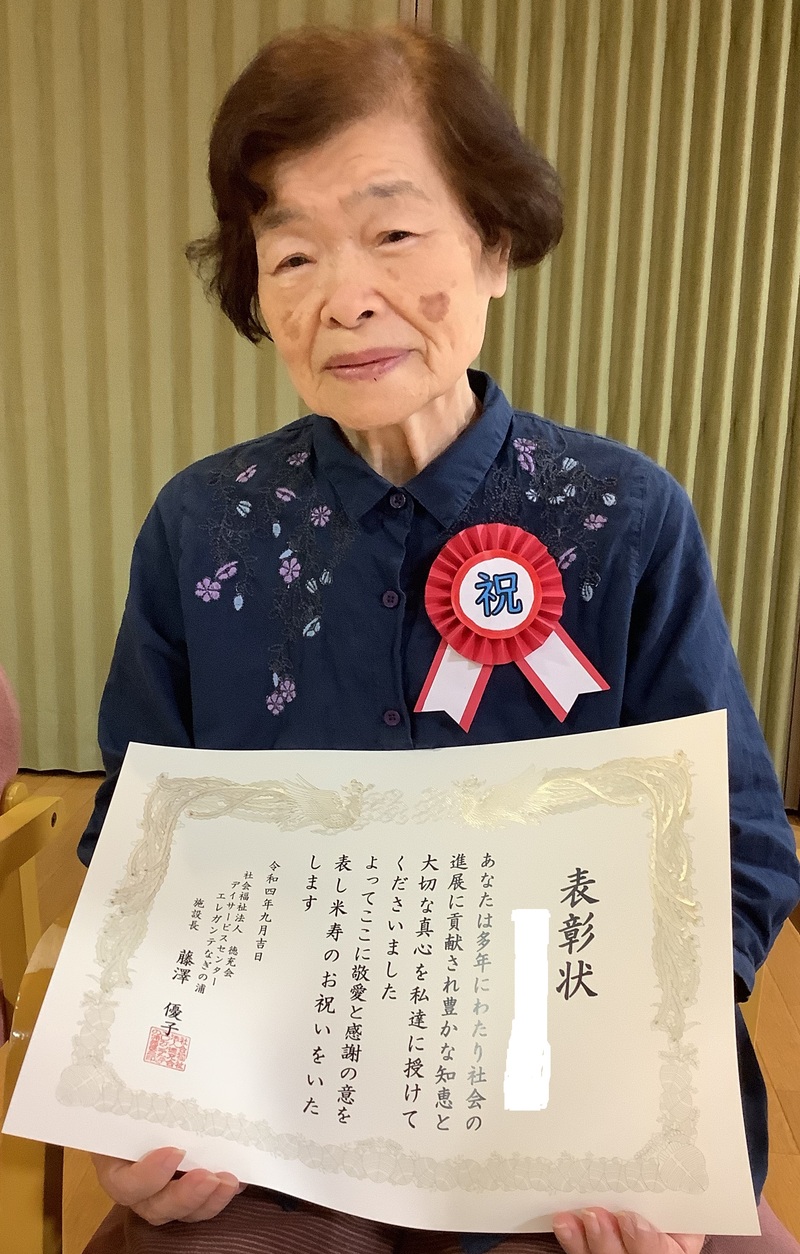 祝
表彰状
あなたは多年にわたり社会の
進展に貢献され豊かな知恵と
大切な真心を私達に授けて
くださいました
よってここに敬愛と感謝の意を
表し米寿のお祝いをいた
します
令和四年九月吉日
社会福祉法人 徳充会
デイサービスセンター
エレガンテなぎの浦
施設長 藤澤 優子